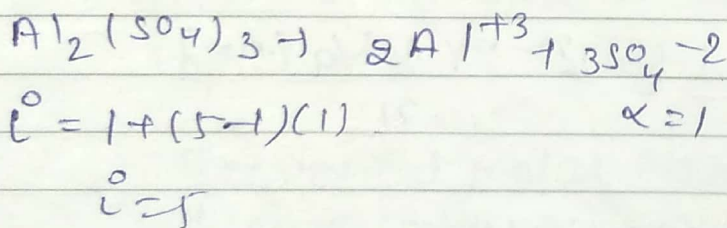 Al₂(SO₄)₃ → 2Al⁺³ + 3SO₄⁻²
i = 1+(5-1)(1) α = 1
i = 5